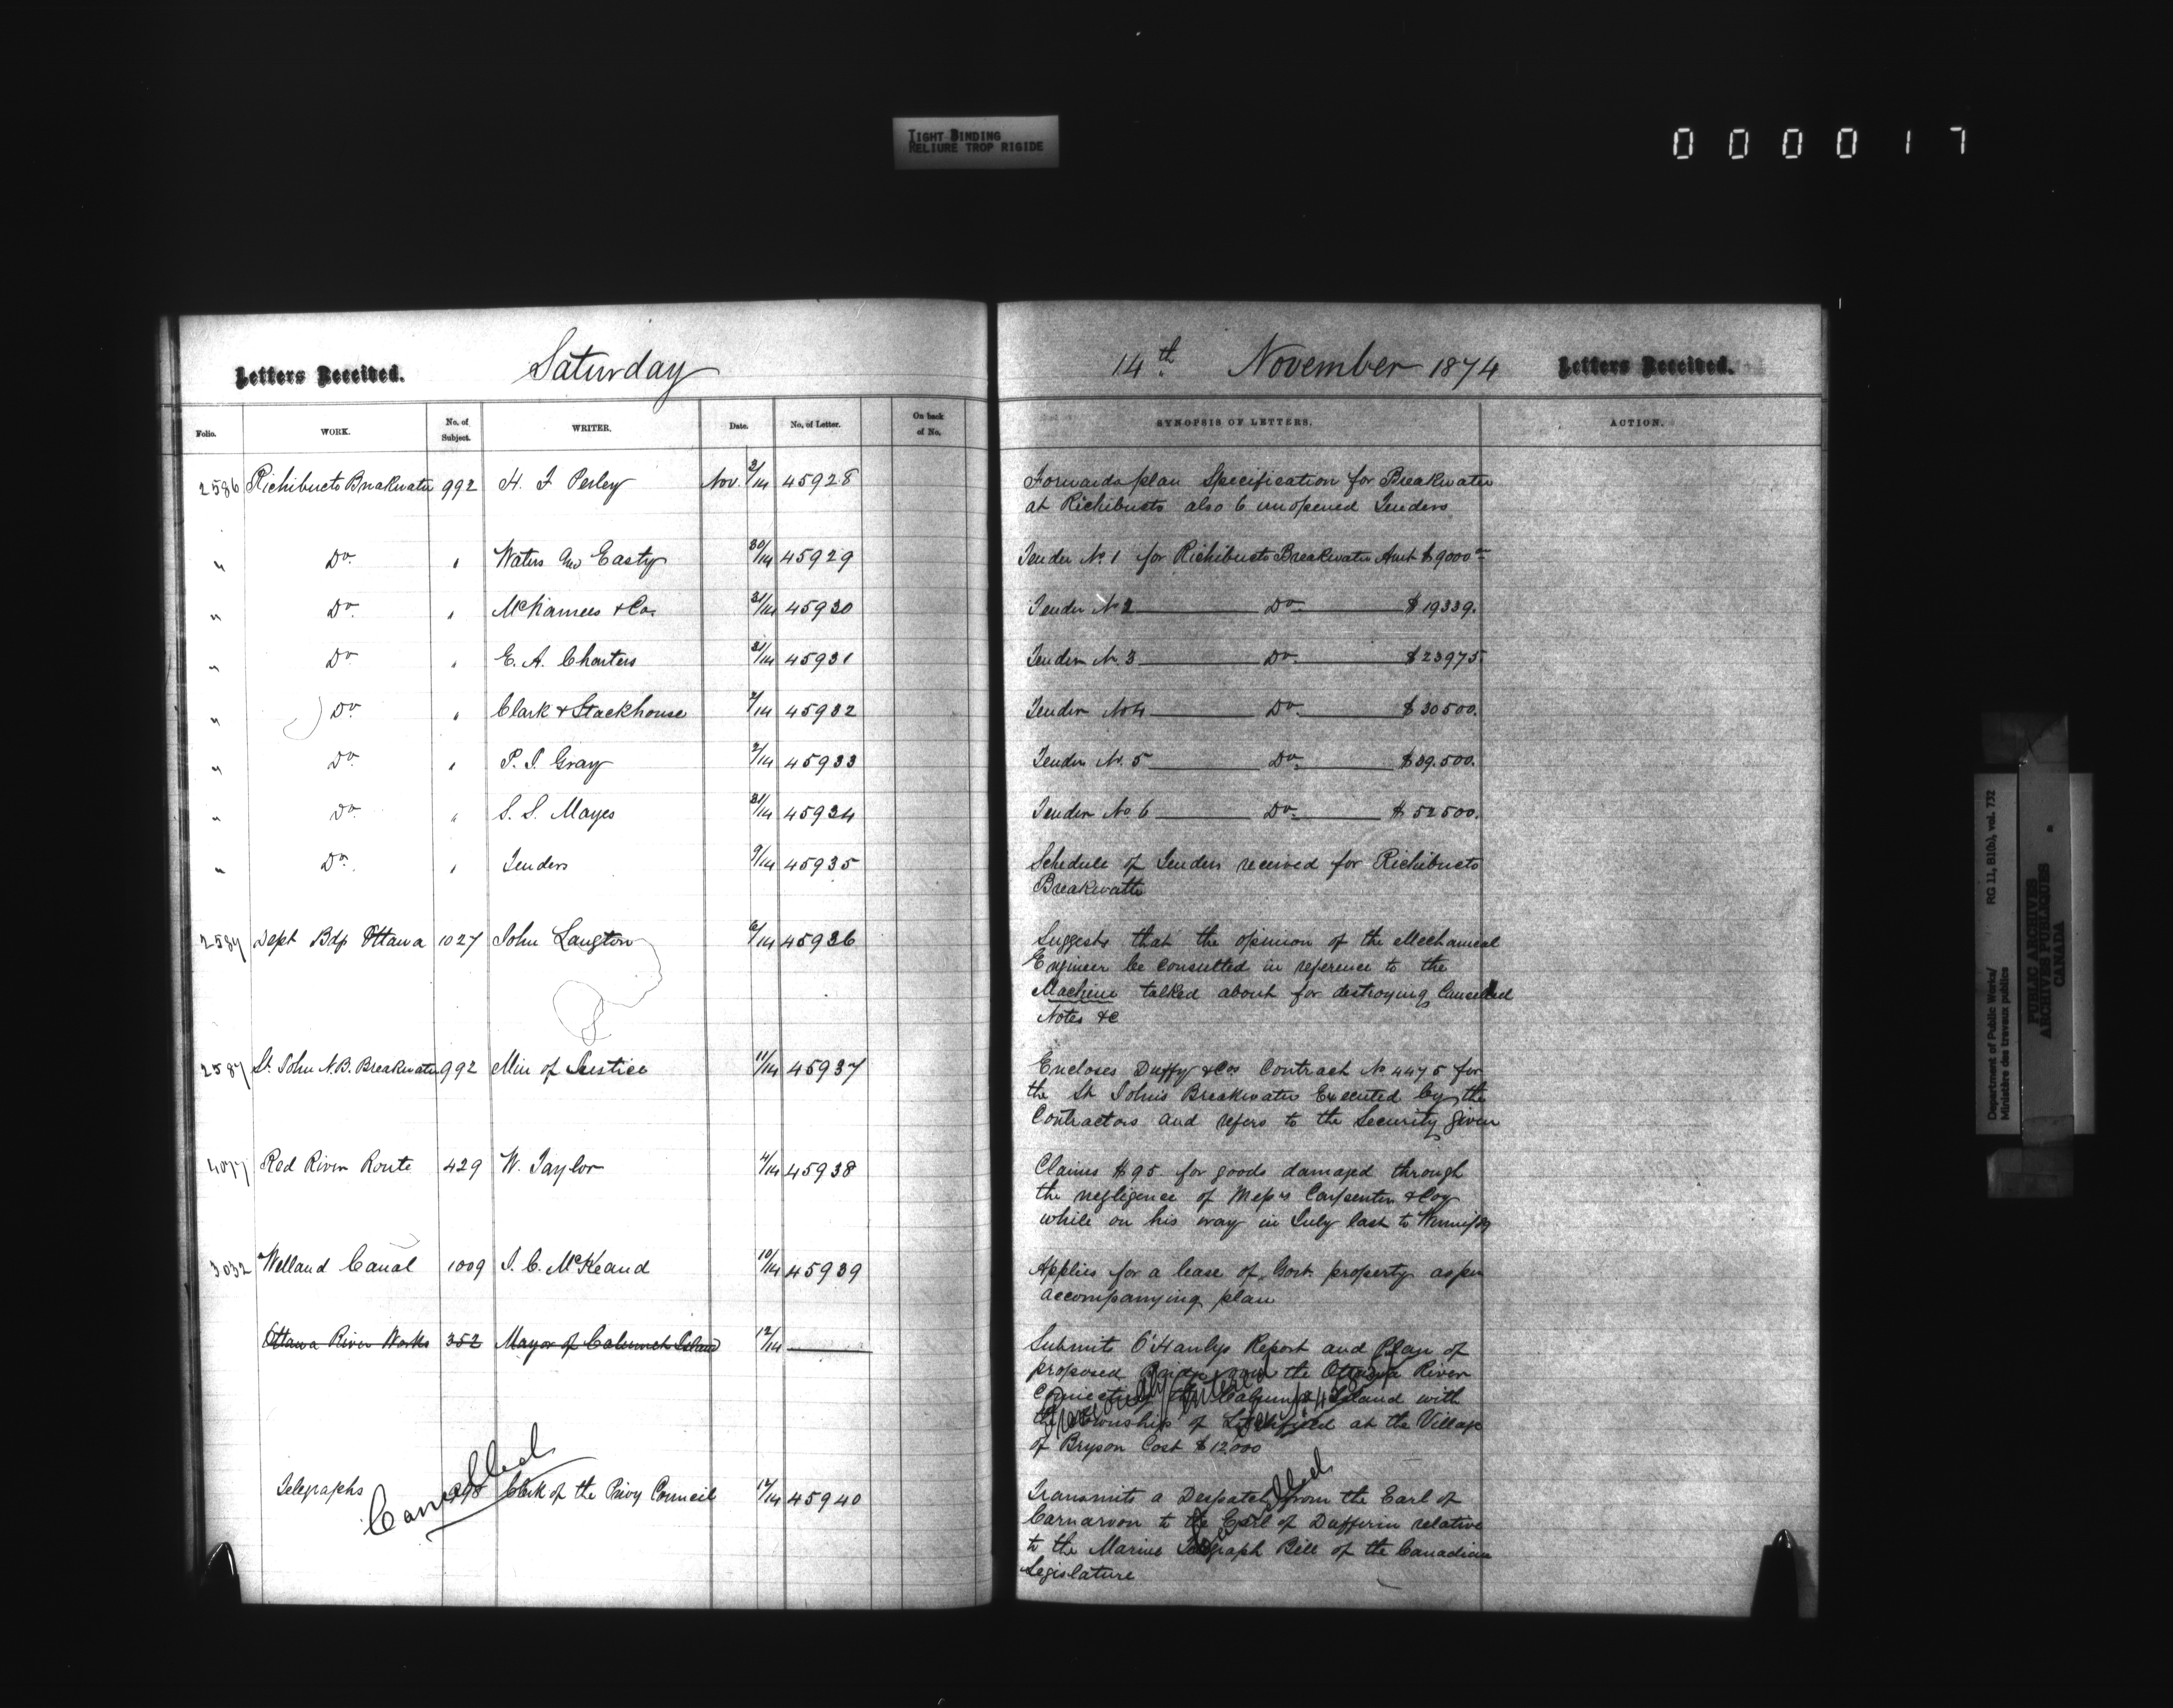 TIGHT BINDING
RELIURE TROP RIGIDE
0 0 0 0 1 7
Letters Received. Saturday 14th November 1874 Letters Received.
Folio. WORK. No. of Subject. WRITER. Date. No. of Letter. On back of No. SYNOPSIS OF LETTERS. ACTION.
2586 Richibucto Breakwater 992 H. F Perley Nov. 2/14 45928 Forwards plan Specification for Breakwater
at Richibucto also 6 unopened Tenders
" Do " Waters Easty 30/14 45929 Tender No. 1 for Richibucto Breakwater Amt $9000
" Do " McNamees & Co. 31/14 45930 Tender No 2 Do $19339.
" Do " E. A. Charters 31/14 45931 Tender No. 3 Do $23975
" Do " Clark & Stackhouse 2/14 45932 Tender No 4 Do $30500.
" Do " P. S. Gray 2/14 45933 Tender No. 5 Do $39.500.
" Do " S. S. Mayes 31/14 45934 Tender No 6 Do $52500.
" Do " Tenders 9/14 45935 Schedule of Tenders received for Richibucto
Breakwater
2587 Dept Bdgs Ottawa 1027 John Langton 6/14 45936 Suggests that the opinion of the Mechanical
Engineer be consulted in reference to the
Machine talked about for destroying Cancelled
Notes &c
2587 St. John N.B. Breakwater 992 Min of Justice 11/14 45937 Encloses Duffy & Cos Contract No 4475 for
the St John's Breakwater Executed by the
Contractors and refers to the Security given
4077 Red River Route 429 W. Taylor 4/14 45938 Claims $95 for goods damaged through
the negligence of Messrs Carpenter & Coy
while on his way in July last to Winnipeg
3032 Welland Canal 1009 J. C. McKeand 10/14 45939 Applies for a lease of Govt. property as per
accompanying plan
Ottawa River Works 352 Mayor of Calumet Island 12/14 Submits O'Hanlys Report and Plan of
proposed Bridge over the Ottawa River
Connecting the Calumet Island with
the Township of Litchfield at the Village
of Bryson Cost $12.000
Previously Entered
Telegraphs 998 Clerk of the Privy Council 12/14 45940 Transmits a Despatch from the Earl of
Carnarvon to the Earl of Dufferin relative
to the Marine Telegraph Bill of the Canadian
Legislature
Cancelled
Cancelled
Department of Public Works/ RG 11, B1(b), vol. 732
Ministère des travaux publics
PUBLIC ARCHIVES
ARCHIVES PUBLIQUES
CANADA